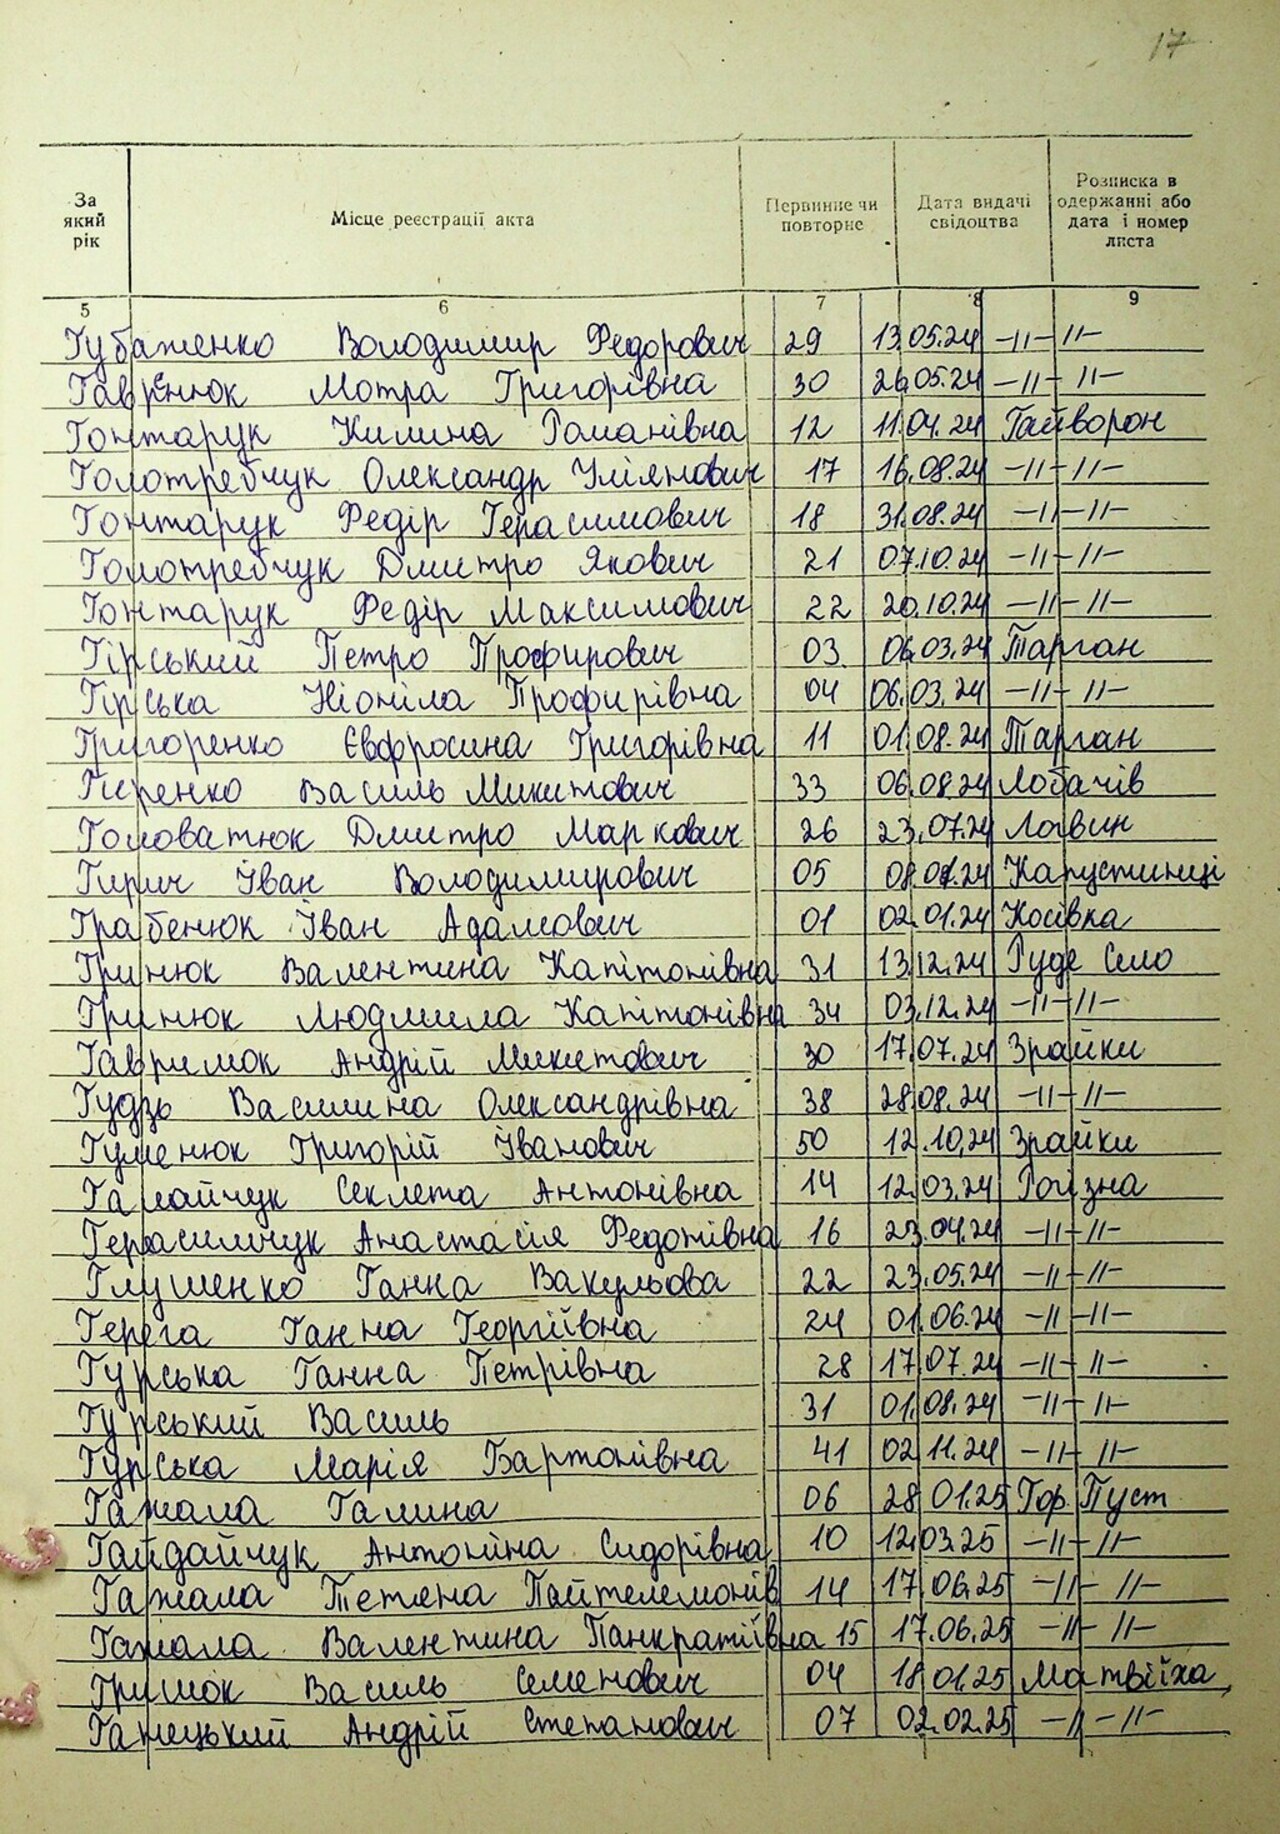 17
За який рік | Місце реєстрації акта | Первинне чи повторне | Дата видачі свідоцтва | Розписка в одержанні або дата і номер листа
5 | 6 | 7 | 8 | 9
Губаженко Володимир Федорович 29 13.05.24 -11- 11-
Гавренюк Мотра Григорівна 30 26.05.24 -11- 11-
Гонтарук Килина Романівна 12 11.04.24 Гайворон
Голотребчук Олександр Улянович 17 16.08.24 -11- 11-
Гонтарук Федір Герасимович 18 31.08.24 -11- 11-
Голотребчук Дмитро Якович 21 07.10.24 -11- 11-
Гонтарук Федір Максимович 22 20.10.24 -11- 11-
Гірський Петро Профирович 03 06.03.24 Тарган
Гірська Ніоніла Профирівна 04 06.03.24 -11- 11-
Григоренко Євфросина Григорівна 11 01.08.24 Тарган
Гиренко Василь Микитович 33 06.08.24 Лобачів
Головатюк Дмитро Маркович 26 23.07.24 Логвин
Гирич Іван Володимирович 05 08.01.24 Капустинці
Грабенюк Іван Адамович 01 02.01.24 Косівка
Гринюк Валентина Капітонівна 31 13.12.24 Руде Село
Гринюк Людмила Капітонівна 34 03.12.24 -11- 11-
Гаврилюк Андрій Микитович 30 17.07.24 Зрайки
Гудзь Василина Олександрівна 38 28.08.24 -11- 11-
Гуменюк Григорій Іванович 50 12.10.24 Зрайки
Галайчук Секлета Антонівна 14 12.03.24 Рогізна
Герасимчук Анастасія Федотівна 16 23.04.24 -11- 11-
Глушенко Ганна Вакульова 22 23.05.24 -11- 11-
Герега Ганна Георгіївна 24 01.06.24 -11- 11-
Гурська Ганна Петрівна 28 17.07.24 -11- 11-
Гурський Василь 31 01.08.24 -11- 11-
Гурська Марія Бартонівна 41 02.11.24 -11- 11-
Гажала Галина 06 28.01.25 Гор. Пуст
Гайдайчук Антоніна Сидорівна 10 12.03.25 -11- 11-
Гажала Тетяна Пайтелемонів 14 17.06.25 -11- 11-
Гажала Валентина Панкратіївна 15 17.06.25 -11- 11-
Гришок Василь Семенович 04 18.01.25 Матвіїха
Ганецький Андрій Степанович 07 02.02.25 -11- 11-